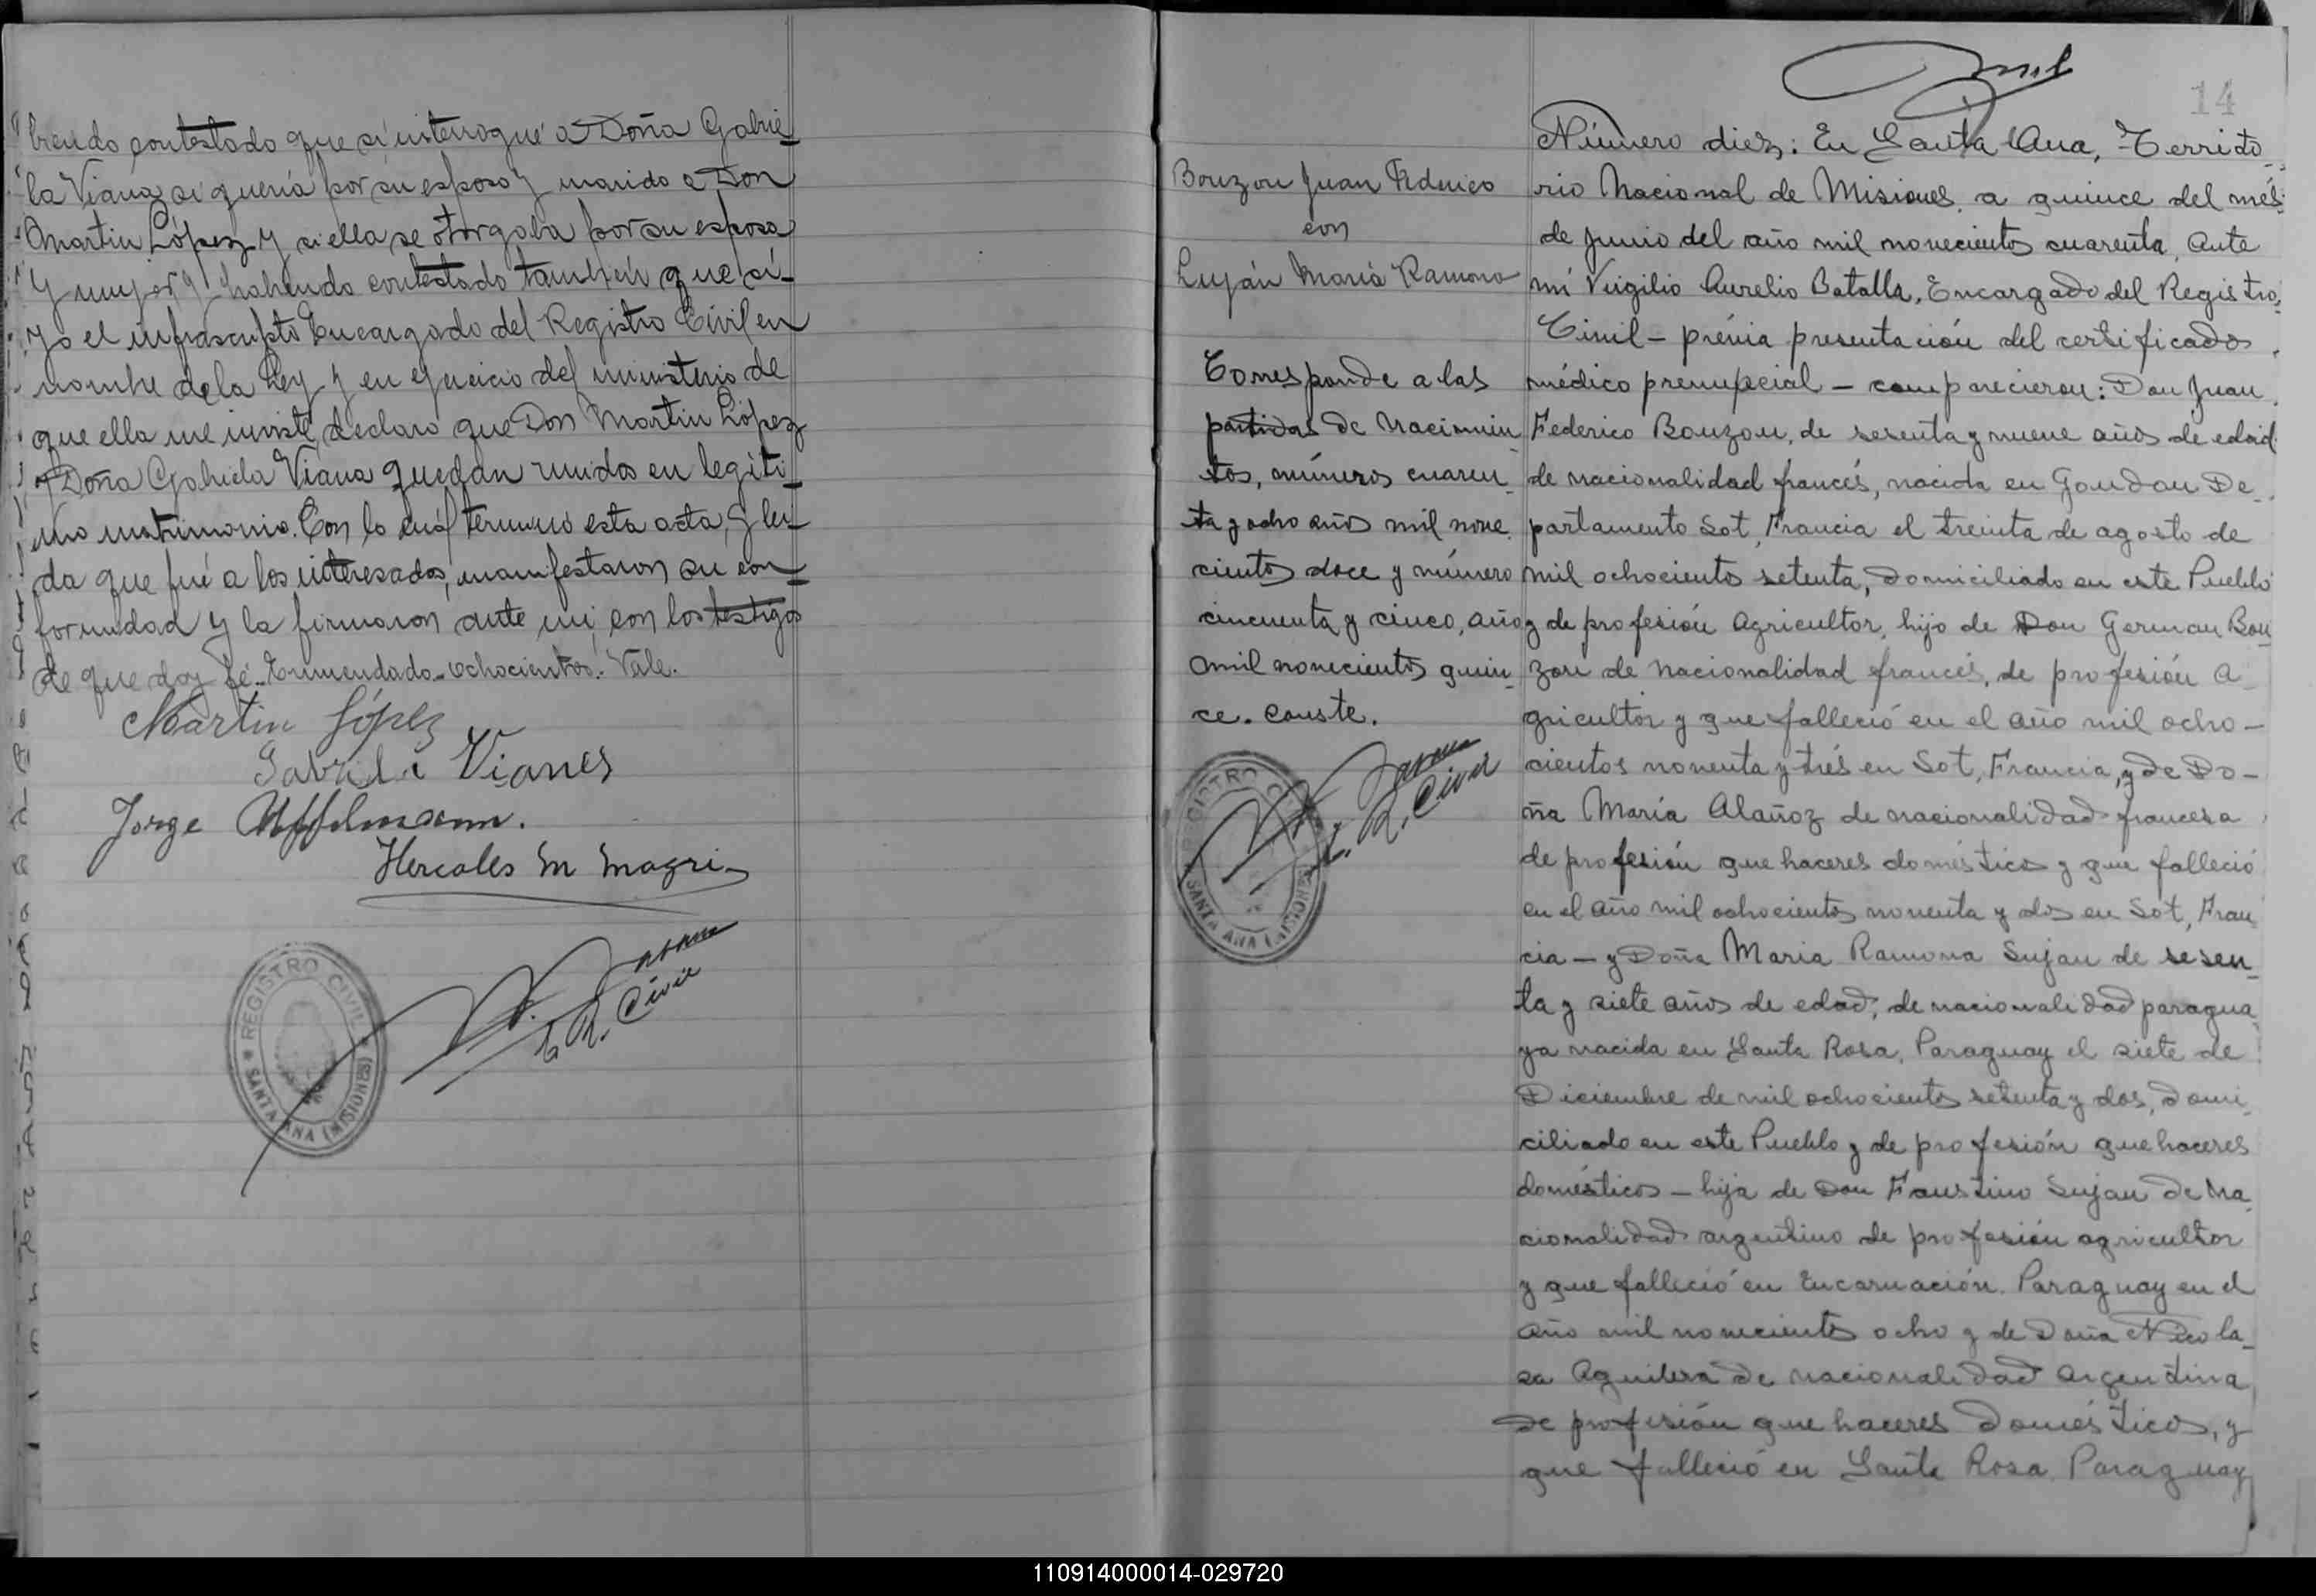 biendo contestado que sí interrogué a Doña Gabrie-
la Viana si quería por su esposo y marido a Don
Martin López y si ella se otorgaba por su esposa
y mujer y habiendo contestado también que sí-
yo el infrascripto Encargado del Registro Civil en
nombre de la Ley y en ejercicio del ministerio de
que ella me inviste, declaro que Don Martin López
y Doña Gabriela Viana quedan unidos en legíti-
mo matrimonio. Con lo cuál terminó esta acta, y leí-
da que fué a los interesados, manifestaron su con-
formidad y la firmaron ante mi, con los testigos
de que doy fé.- Enmendado-ochocientos: Vale.
Martin López
Gabriela Vianes
Jorge
Hercoles M Magri
REGISTRO CIVIL
SANTA ANA (MISIONES)
E. R. Civil
14
Bouzon Juan Federico
con
Luján María Ramona
Corresponde a las
partidas de Nacimien-
tos, números cuaren-
ta y ocho año mil nove-
cientos doce y número
cincuenta y cinco, año
mil novecientos quin-
ce. Conste.
REGISTRO CIVIL
SANTA ANA (MISIONES)
E. R. Civil
Número diez: En Santa Ana, Territo-
rio Nacional de Misiones, a quince del més
de Junio del año mil novecientos cuarenta, ante
mí Virgilio Aurelio Batalla, Encargado del Registro
Civil - prévia presentación del certificado
médico prenupcial - comparecieron: Don Juan
Federico Bouzon, de sesenta y nueve años de edad
de nacionalidad francés, nacido en Goudou De-
partamento Sot, Francia el treinta de agosto de
mil ochocientos setenta, domiciliado en este Pueblo
y de profesión Agricultor, hijo de Don German Bou-
zon de nacionalidad francés, de profesión a-
gricultor y que falleció en el año mil ocho-
cientos noventa y trés en Sot, Francia, y de Do-
ña María Alañoz de nacionalidad francesa
de profesión quehaceres domésticos y que falleció
en el año mil ochocientos noventa y dos en Sot, Fran-
cia - y Doña Maria Ramona Lujan de sesen-
ta y siete años de edad, de nacionalidad paragua-
ya nacida en Santa Rosa, Paraguay el siete de
Diciembre de mil ochocientos setenta y dos, domi-
ciliado en este Pueblo y de profesión quehaceres
domésticos - hija de Don Faustino Lujan de na-
cionalidad argentino de profesión agricultor
y que falleció en Encarnación, Paraguay en el
año mil novecientos ocho y de Doña Nicola-
sa Aguilera de nacionalidad Argentina
de profesión quehaceres domésticos, y
que falleció en Santa Rosa, Paraguay
110914000014-029720